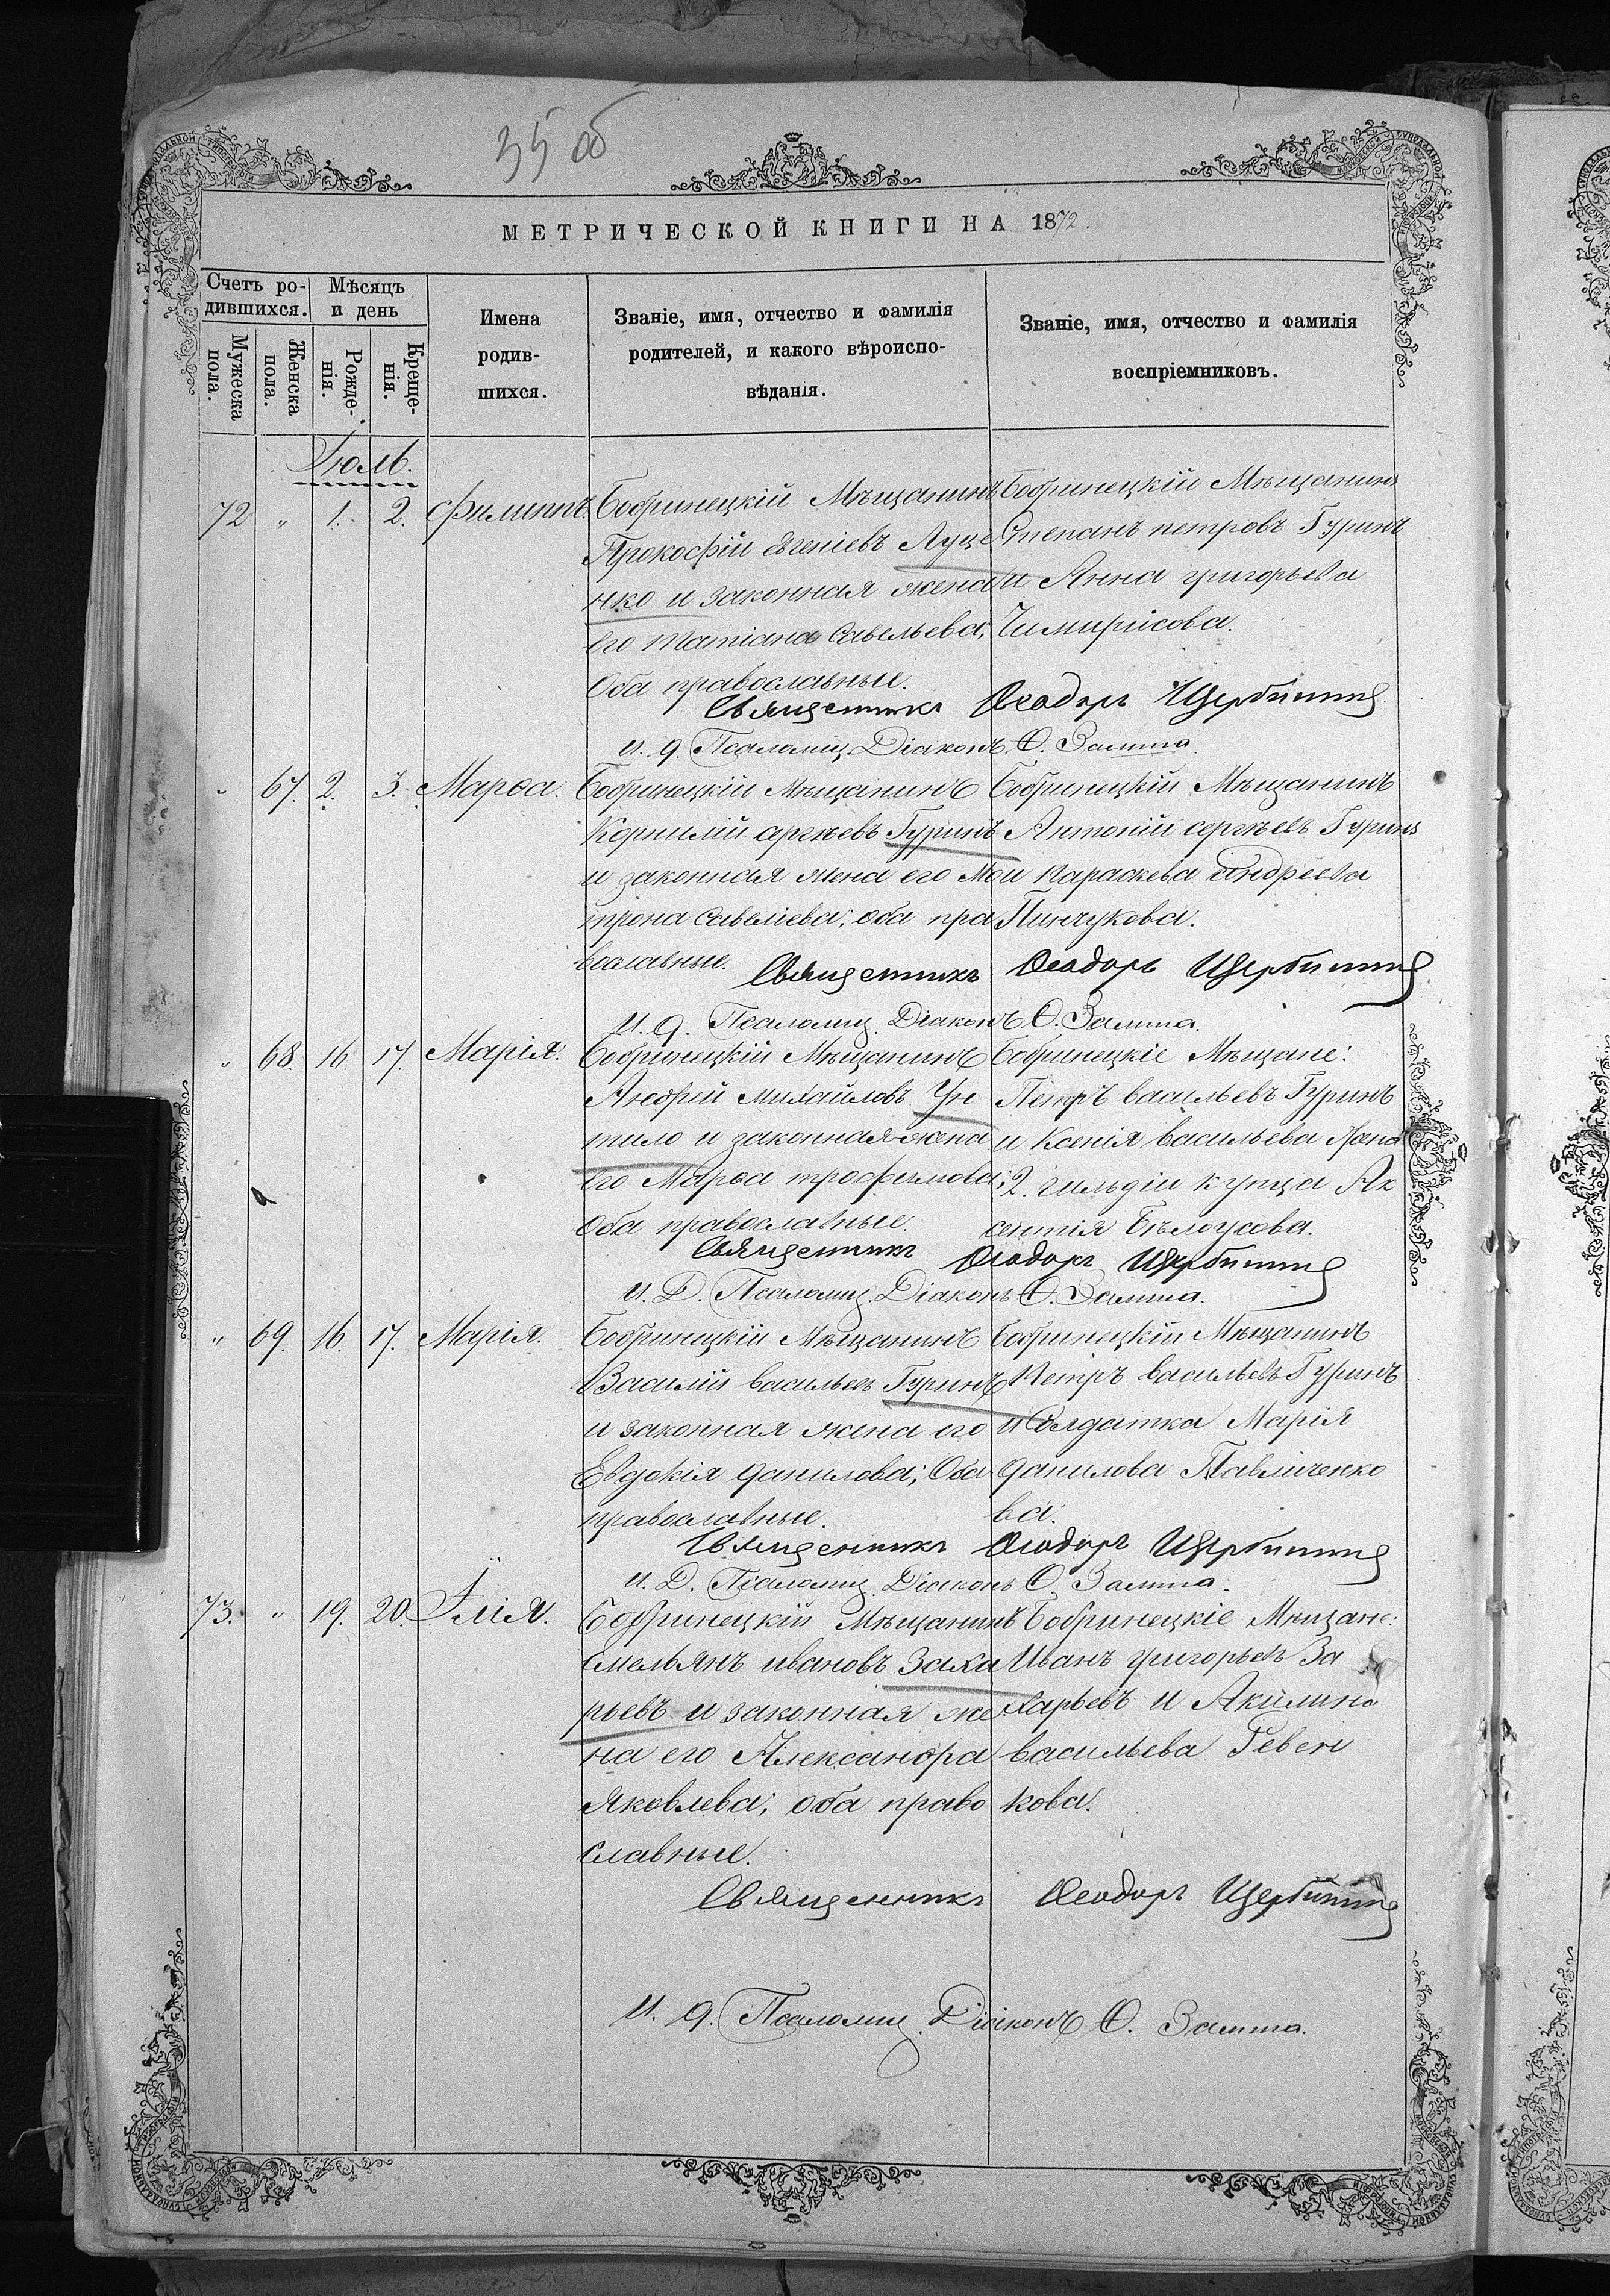 35 об
МЕТРИЧЕСКОЙ КНИГИ НА 1872.
Счетъ родившихся.
Мѣсяцъ и день
Мужеска пола.
Женска пола.
Рожденія.
Крещенія.
Имена родившихся.
Званіе, имя, отчество и фамилія
родителей, и какого вѣроиспо-
вѣданія.
Званіе, имя, отчество и фамилія
воспріемниковъ.
Іюль.
72 " 1. 2. Филиппъ.
Бобринецкій Мѣщанинъ
Прокофій Евгеніевъ Луце
нко и законная жена
его Татіана Савельева;
Оба православные.
Бобринецкій Мѣщанинъ
Степанъ петровъ Гуринъ
и Анна григорьева
Чимирисова.
Священникъ Ѳеодоръ Щербинин
и. д. Псаломщ. Діаконъ Ѳ. Замша.
" 67. 2. 3. Марѳа.
Бобринецкій Мѣщанинъ
Корнилій сергѣевъ Гуринъ
и законная жена его Ма
трона Савеліева; оба пра
вославные.
Бобринецкій Мѣщанинъ
Антоній сергѣевъ Гуринъ
и параскева андреева
Пинчукова.
Священникъ Ѳеодоръ Щербинин
и. д. Псаломщ. Діаконъ Ѳ. Замша.
" 68. 16. 17. Марія.
Бобринецкій Мѣщанинъ
Андрей михайловъ
и законная жена
его Марѳа трофимова;
Оба православные.
Бобринецкіе Мѣщане:
Петръ васильевъ Гуринъ
и Ксенія васильева жена
2. гильдіи купца Ак
сентія Бѣлоусова.
Священникъ Ѳеодоръ Щербинин
И. Д. Псаломщ. Діаконъ Ѳ. Замша.
" 69. 16. 17. Марія.
Бобринецкій Мѣщанинъ
Василій васильевъ Гуринъ
и законная жена его
Евдокія данилова; Оба
православные.
Бобринецкій Мѣщанинъ
Петръ васильевъ Гуринъ
и Солдатка Марія
данилова Павличенко
ва.
Священникъ Ѳеодоръ Щербинин
И. Д. Псаломщ. Діаконъ Ѳ. Замша.
73. " 19. 20. Илія.
Бобринецкій Мѣщанинъ
Емельянъ ивановъ Заха
рьевъ и законная же
на его Александра
Яковлева; оба право
славные.
Бобринецкіе Мѣщане:
Иванъ григорьевъ За
харьевъ и Акилина
васильева Ревен
кова.
Священникъ Ѳеодоръ Щербинин
И. д. Псаломщ. Діаконъ Ѳ. Замша.